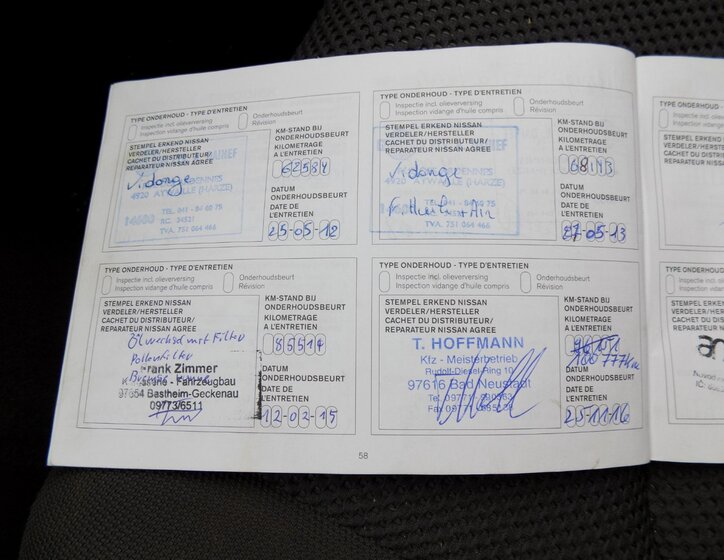 TYPE ONDERHOUD - TYPE D'ENTRETIEN
Inspectie incl. olieverversing
Inspection vidange d'huile compris
Onderhoudsbeurt
Révision
STEMPEL ERKEND NISSAN
VERDELER/HERSTELLER
CACHET DU DISTRIBUTEUR/
REPARATEUR NISSAN AGREE
Vidange
4920 AYWAILLE (HARZE)
TEL. 041 - 84 60 75
R.C. 34521
TVA. 751 064 466
KM-STAND BIJ
ONDERHOUDSBEURT
KILOMETRAGE
A L'ENTRETIEN
62584
DATUM
ONDERHOUDSBEURT
DATE DE
L'ENTRETIEN
25-05-12
TYPE ONDERHOUD - TYPE D'ENTRETIEN
Inspectie incl. olieverversing
Inspection vidange d'huile compris
Onderhoudsbeurt
Révision
STEMPEL ERKEND NISSAN
VERDELER/HERSTELLER
CACHET DU DISTRIBUTEUR/
REPARATEUR NISSAN AGREE
Vidange
4920 AYWAILLE (HARZE)
TEL. 041 - 84 60 75
TVA. 751 064 466
KM-STAND BIJ
ONDERHOUDSBEURT
KILOMETRAGE
A L'ENTRETIEN
68193
DATUM
ONDERHOUDSBEURT
DATE DE
L'ENTRETIEN
27-05-13
TYPE ONDERHOUD - TYPE D'ENTRETIEN
Inspectie incl. olieverversing
Inspection vidange d'huile compris
Onderhoudsbeurt
Révision
STEMPEL ERKEND NISSAN
VERDELER/HERSTELLER
CACHET DU DISTRIBUTEUR/
REPARATEUR NISSAN AGREE
Ölwechsel mit Filter
Pollenfilter
Frank Zimmer
Fahrzeugbau
97654 Bastheim-Geckenau
09773/6511
KM-STAND BIJ
ONDERHOUDSBEURT
KILOMETRAGE
A L'ENTRETIEN
85514
DATUM
ONDERHOUDSBEURT
DATE DE
L'ENTRETIEN
12-02-15
TYPE ONDERHOUD - TYPE D'ENTRETIEN
Inspectie incl. olieverversing
Inspection vidange d'huile compris
Onderhoudsbeurt
Révision
STEMPEL ERKEND NISSAN
VERDELER/HERSTELLER
CACHET DU DISTRIBUTEUR/
REPARATEUR NISSAN AGREE
T. HOFFMANN
Kfz - Meisterbetrieb
Rudolf-Diesel-Ring 10
97616 Bad Neustadt
KM-STAND BIJ
ONDERHOUDSBEURT
KILOMETRAGE
A L'ENTRETIEN
100777km
DATUM
ONDERHOUDSBEURT
DATE DE
L'ENTRETIEN
25-11-16
58